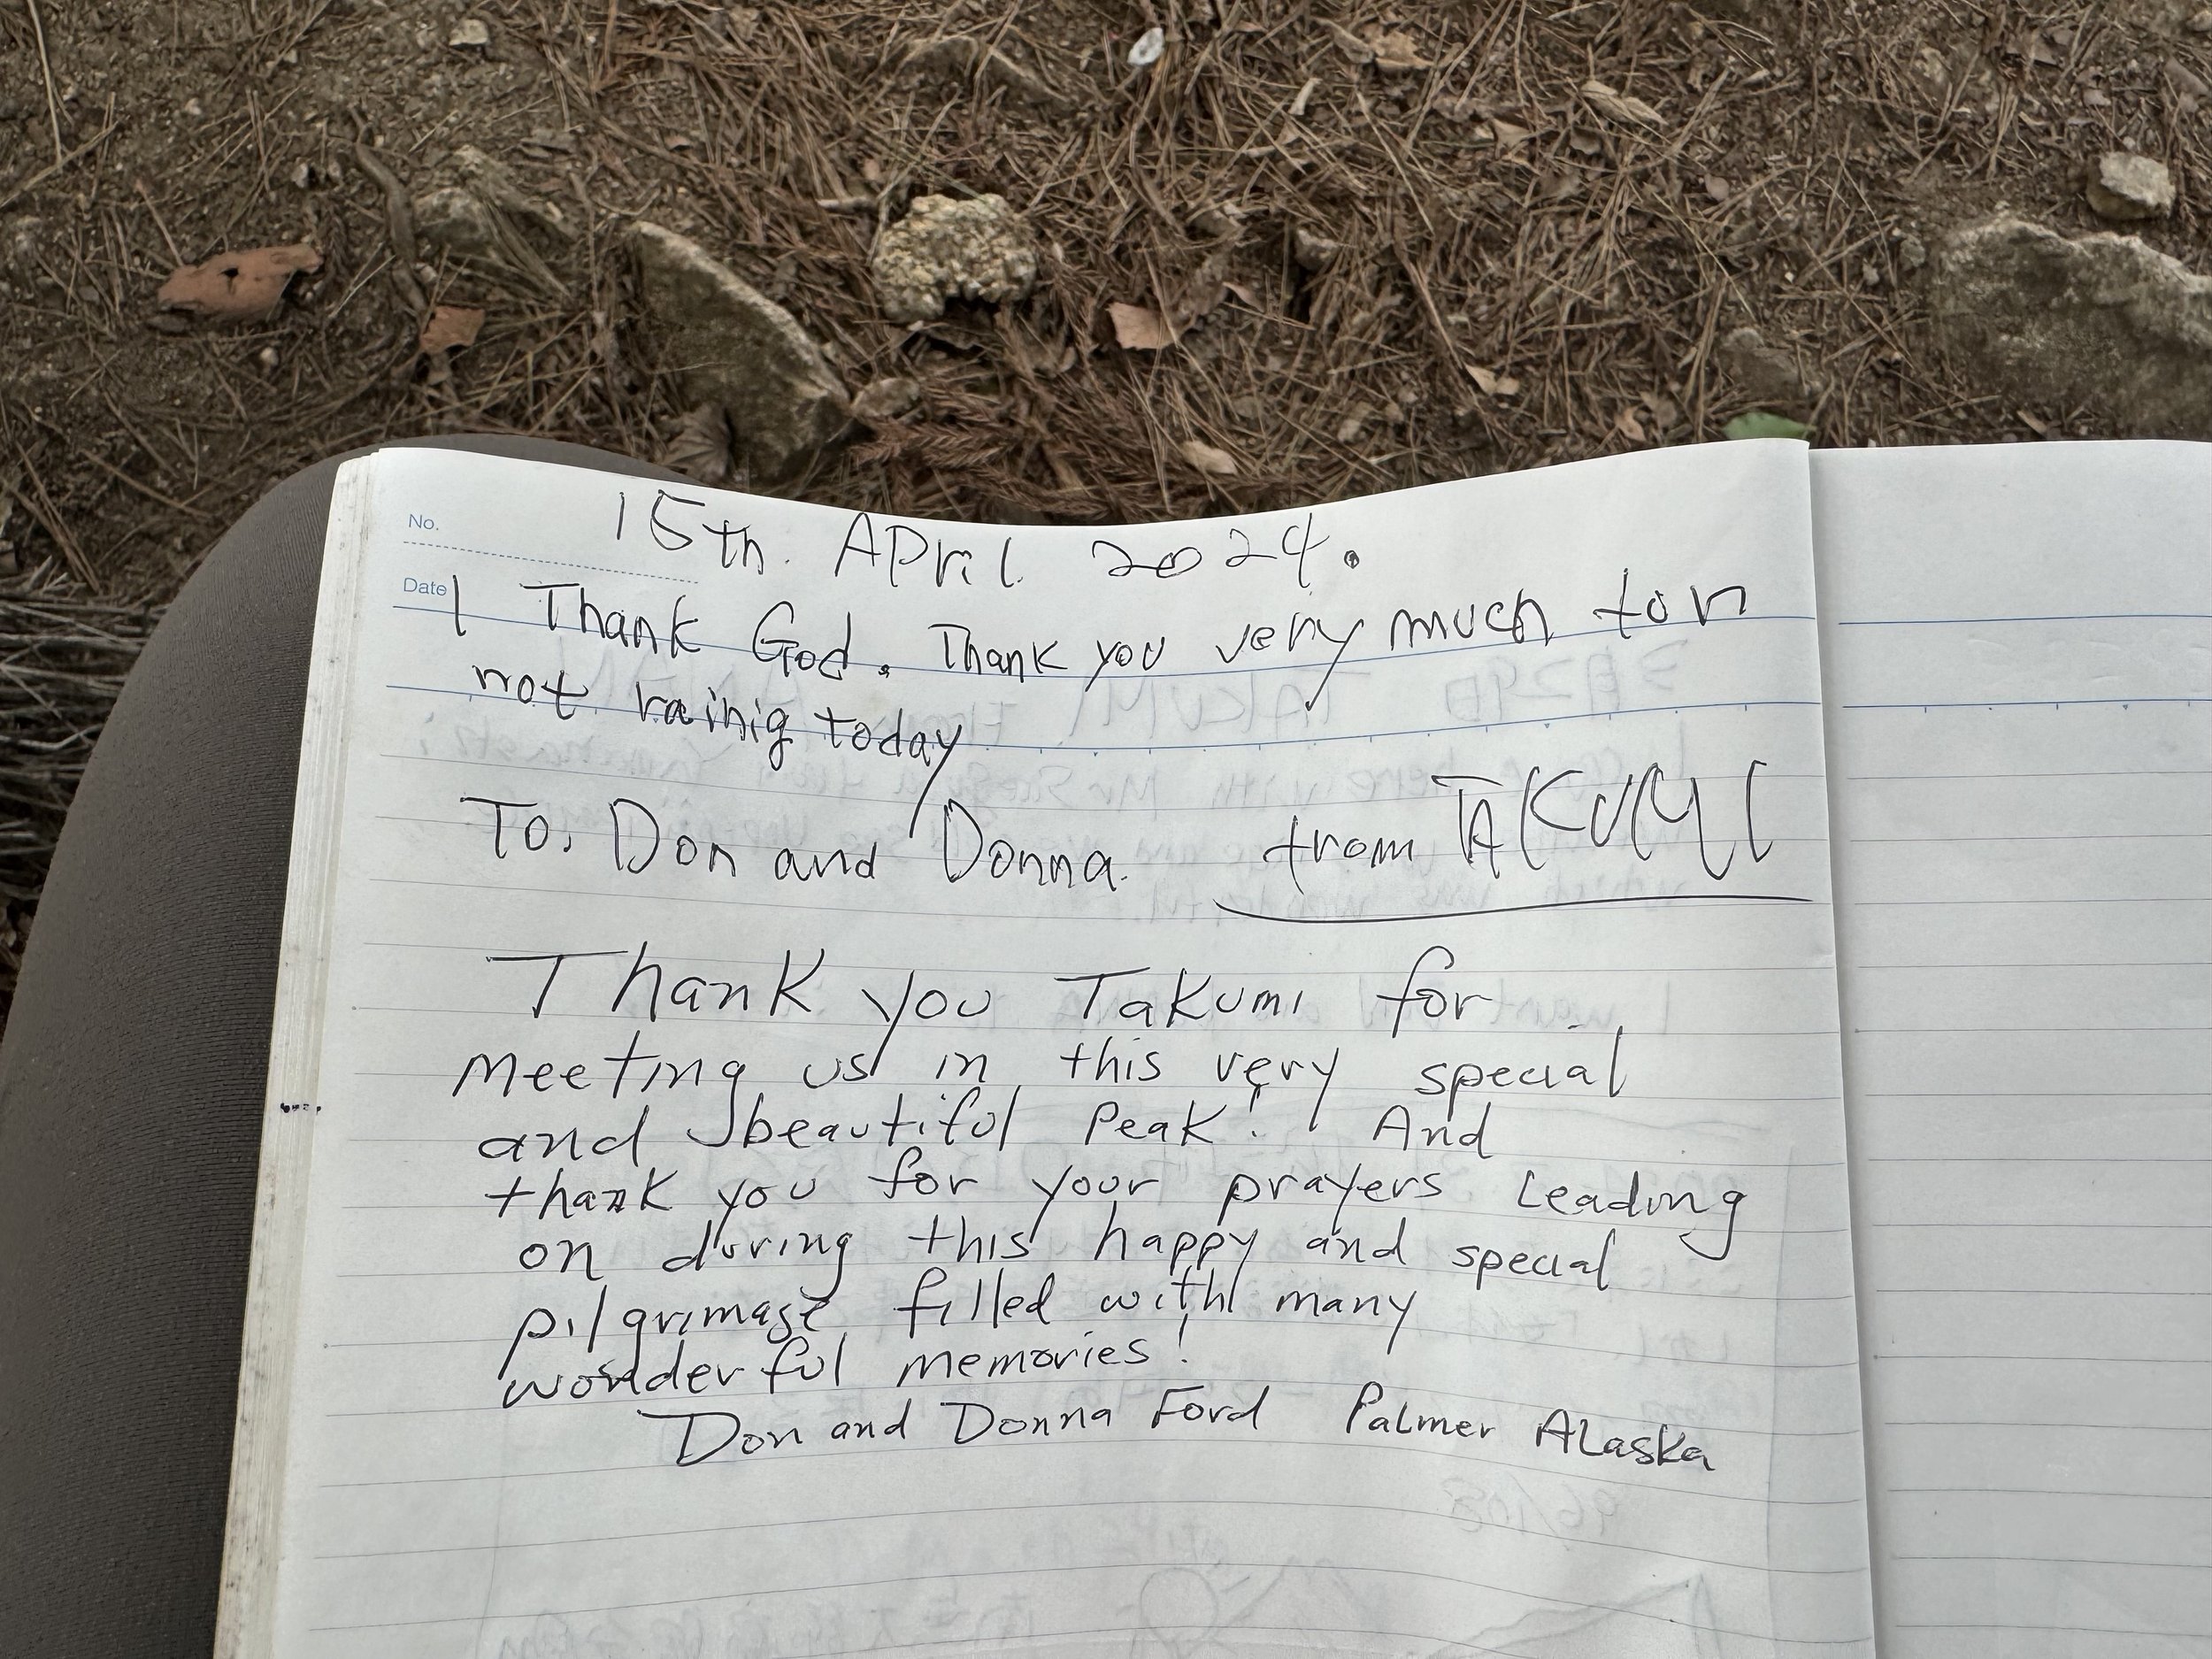 No.
15th. April. 2024.
Date
I Thank God. Thank you very much for
not rainig today
To. Don and Donna. from TAKUMI
Thank you Takumi for
meeting us in this very special
and beautiful Peak! And
thank you for your prayers leading
on during this happy and special
pilgrimage filled with many
wonderful memories!
Don and Donna Ford Palmer Alaska
96/108